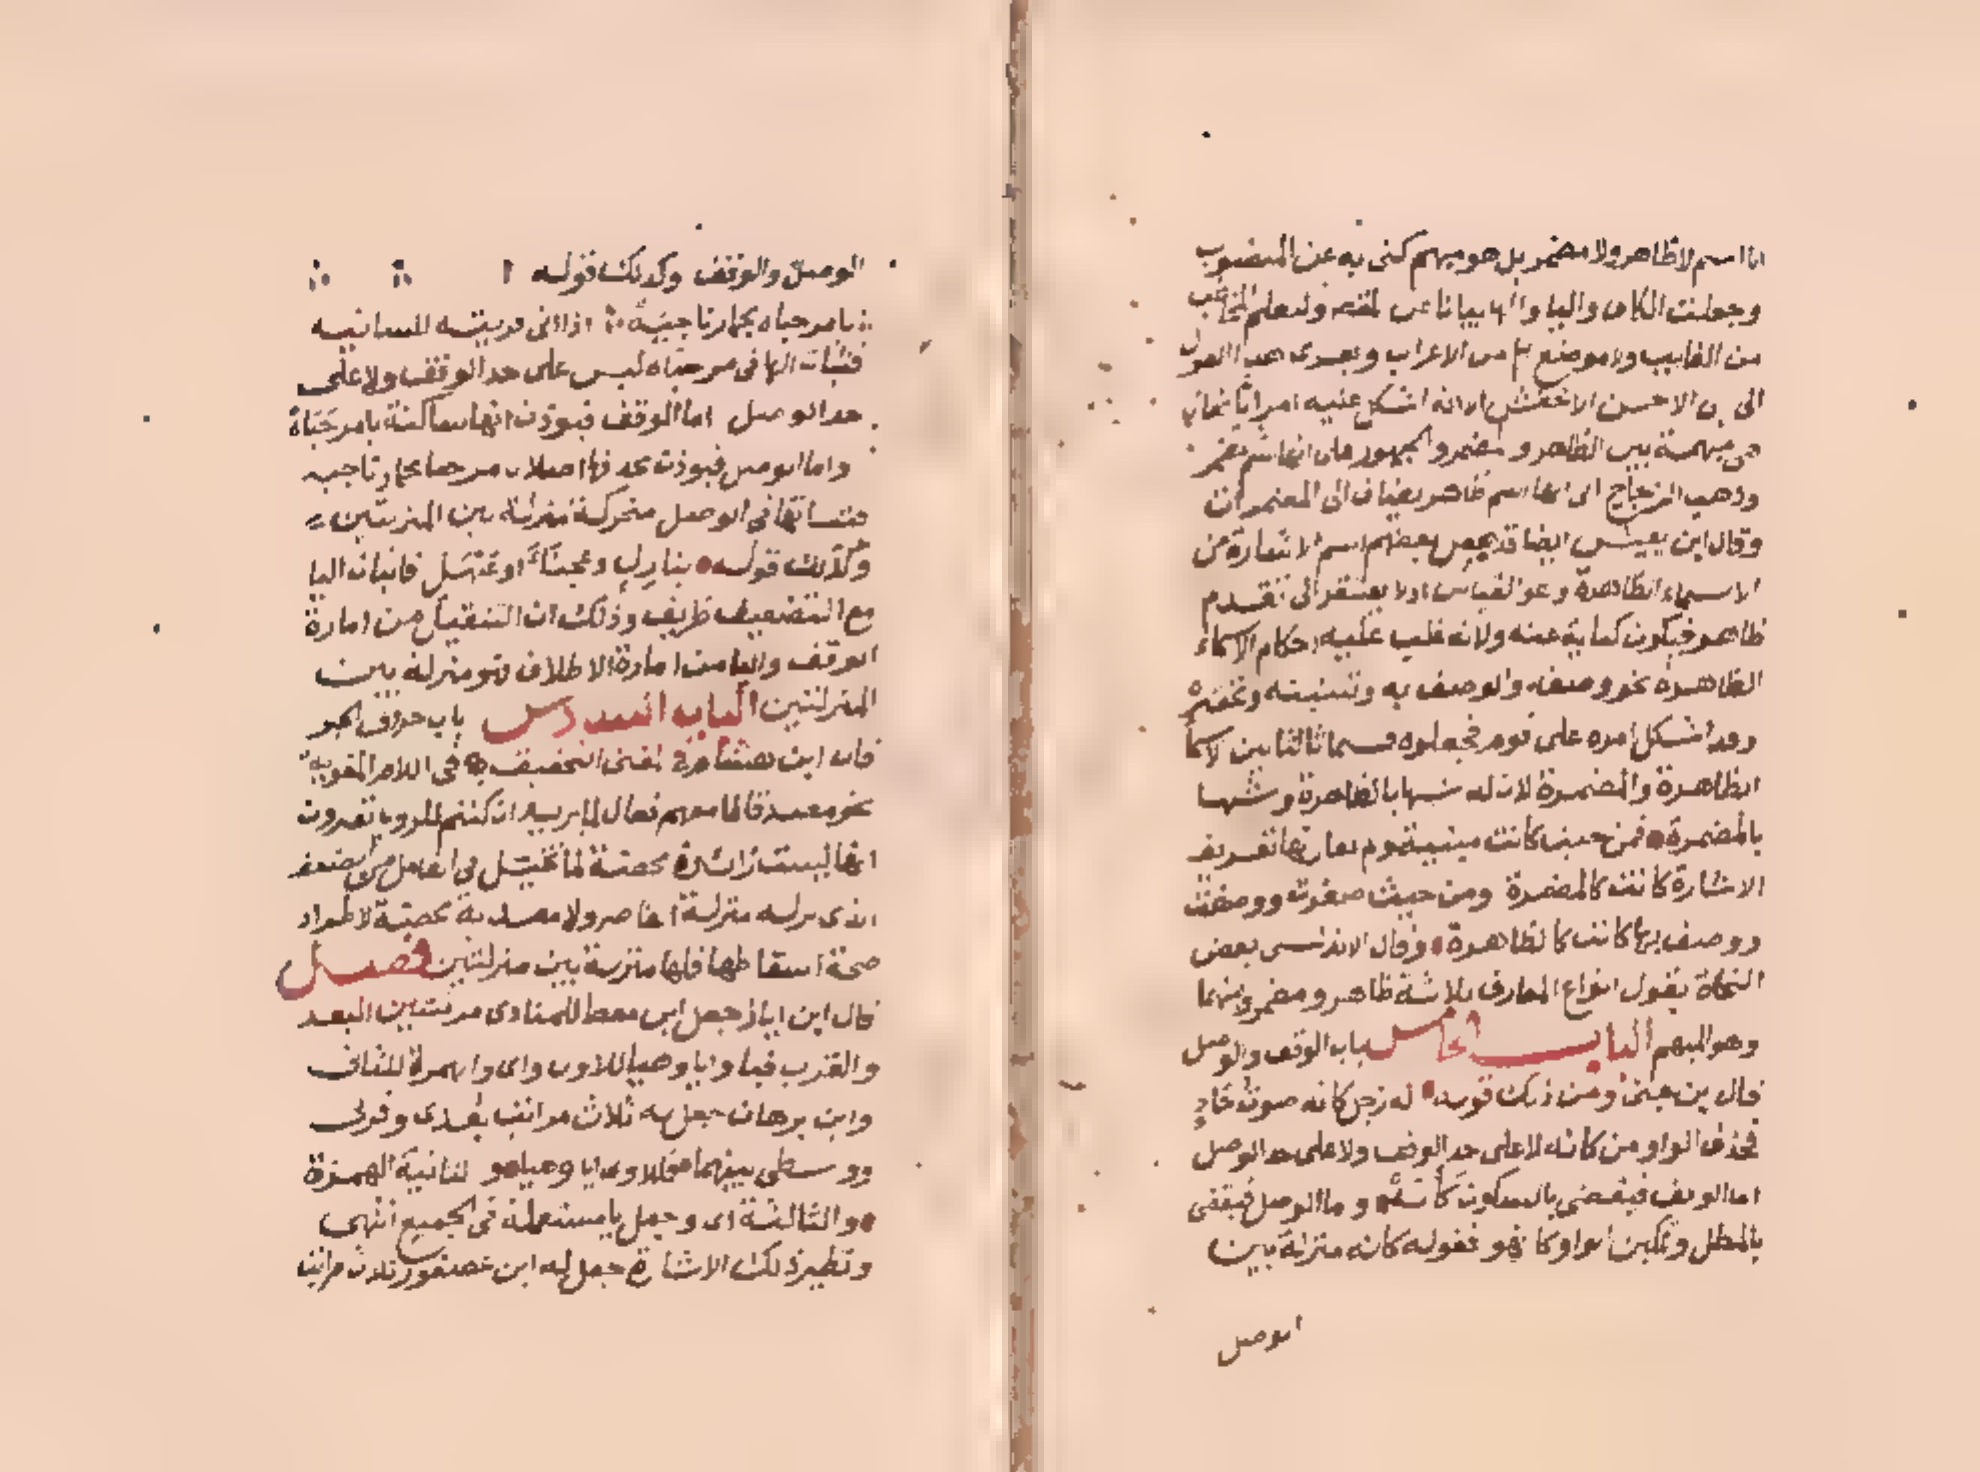 ايا اسم لا ظاهر ولا مضمر بل هو مبهم كنى به عن المنصوب
وجعلت الكاف والياء والها بيانا عن المقصود وليعلم المخاطب
من الغايب ولا موضع لها من الاعراب ويعزى هذا القول
الى ابى الاحسن الاخفش الا انه اشكل عليه امر ايا فقال
هى مبهمة بين الظاهر والمضمر والجمهور على انها اسم مضمر
وذهب الزجاج الى انها اسم ظاهر يضاف الى المضمرات
وقال ابن يعيش ايضا قد يجعل بعضهم اسم الاشارة من
الاسماء الظاهرة وهو القياس اذ لا يفتقر الى تقدم
ظاهر فيكون كناية عنه ولانه غلب عليه احكام الاسماء
الظاهرة نحو وصفه والوصف به وتثنيته وتحقيره
وقد اشكل امره على قوم فجعلوه قسما ثالثا بين الاسما
الظاهرة والمضمرة لان له شبها بالظاهرة وشبها
بالمضمرة فمن حيث كانت مبنية ولم يفارقها تعريف
الاشارة كانت كالمضمرة ومن حيث صغرت ووصفت
ووصف بها كانت كالظاهرة وقال الاندلسى بعض
النحاة يقول انواع المعارف ثلاثة ظاهر ومضمر ولا منهما
وهو المبهم الباب الخامس باب الوقف والوصل
قال ابن جنى ومن ذلك قوله له زجل كانه صوت حاد
فحذف الواو من كانه لا على حد الوقف ولا على حد الوصل
اما الوقف فيقضى بالسكون كأنه واما الوصل فيقضى
بالمطل وتمكين الواو كانهو فقوله كانه منزلة بين
الوصل
الوصل والوقف وكذلك قوله
يا مرحباه بحمار ناجيه اذا اتى قربته للسانيه
فثبات الها فى مرحباه ليس على حد الوقف ولا على
حد الوصل اما الوقف فيؤذن انها ساكنة يا مرحباه
واما الوصل فيؤذن بحذفها اصلا يا مرحبا بحمار ناجيه
فثباتها فى الوصل متحركة منزلة بين المنزلتين
وكذلك قوله ببازل وجناء او عيهل فاثبات اليا
مع التضعيف ظريف وذلك ان التثقيل من امارة
الوقف واليا من امارة الاطلاق فهو منزلة بين
المنزلتين الباب السادس باب حروف الجر
قال ابن هشام فى المغنى التحقيق فى اللام المقوية
نحو مصدقا لما معهم فعال لما يريد ان كنتم للرويا تعبرون
انها ليست زائدة محضة لما تخيل فى العامل من الضعف
الذى نزله منزلة القاصر ولا معدية محضة لاطراد
صحة اسقاطها فلها منزلة بين منزلتين فصل
قال ابن اياز جعل ابن معط للمنادى مرتبتين البعد
والقرب فيا وايا وهيا للاول واى والهمزة للثانى
وابن برهان جعل له ثلاث مراتب بعدى وقربى
ووسطى بينهما فللاولى ايا وهيا وللثانية الهمزة
وللثالثة اى وجعل يا مستعملة فى الجميع انتهى
ونظير ذلك الاشارة جعل له ابن عصفور ثلاث مراتب